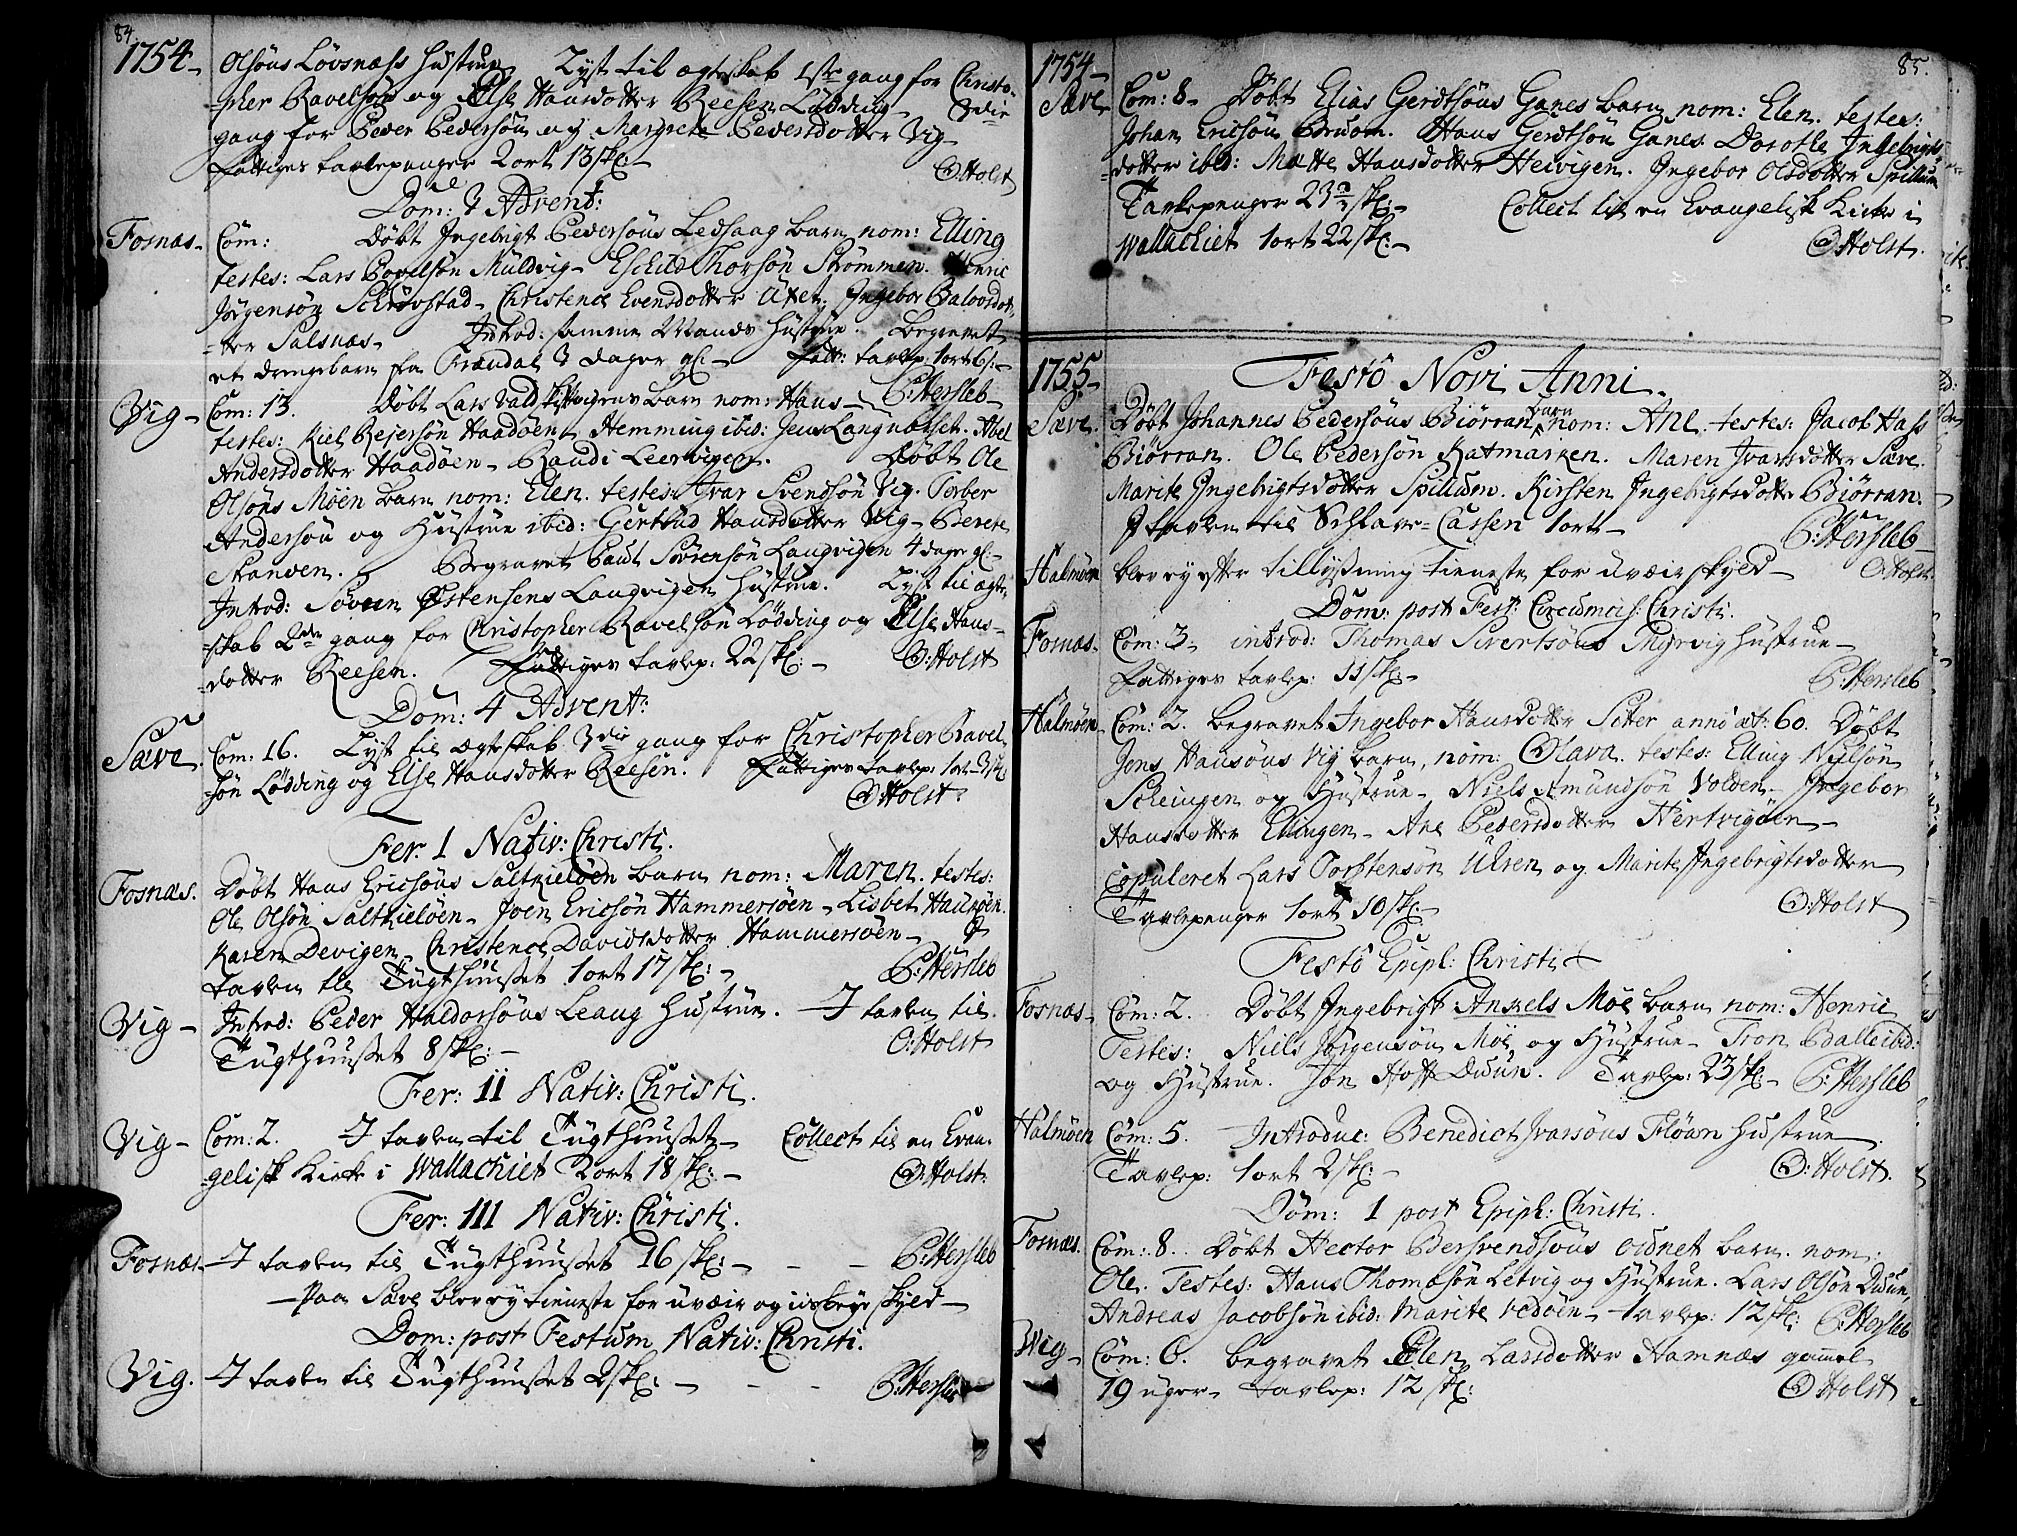 84.
1754- Olsöns Lövsnæss hustrue Lyst til ægteskab 1ste gang for Christo-
=pher Ravelsön og Else Hansdotter Reesen Lödding- 3die
gang for Peder Pedersön og Margrete Pedersdotter Vig-
Fattiges tavlepenger 2ort 13skl:-
O:Holst
Dom: 3 Advent:
Fosnæs- Com: Döbt Ingebrigt Pedersöns Ledsaag barn nom: Elling
testes: Lars Povelsön Mülvig- Eschild Thorsön Strömmen. Henric
Jörgensön Schrövstad- Christence Evensdotter Axet. Ingebor Baloosdot-
=ter Salsnæs- Introd: samme Mands hüstrue. Begravet
et drengebarn fra Frændal 3 dager gl:- Fatt: tavlep: 1ort 6s:-
Vig- Com: 13. Döbt Lars Vald barn nom: Hans- C:Hersleb-
testes: Kiel Rejersön Haadöen- Hemming ibid: Jens Langnæsset. Abel
Andersdotter Haadöen- Randi Leervigen. Döbt Ole
Olsöns Möen barn nom: Elen. testes: Ivar Svendsön Vig. Torber
Andersön og Hustrue ibid: Gertrud Hansdotter Vig- Berete
Skanven. Begravet Paul Sörensön Langvigen 4 dager gl:-
Introd: Sören Östensens Langvigen hustrue. Lyst til ægte-
=skab 2den gang for Christopher Ravelsön Lödding og Else Hans-
=dotter Reesen. Fattiges tavlep: 22skl:- O:Holst
Dom: 4 Advent:
Sæve. Com: 16. Lyst til ægteskab 3die gang for Christopher Ravel-
=sön Lödding og Else Hansdotter Reesen. Fattiges tavlep: 1ort 3skl
O:Holst:
Fer: I Nativ: Christi.
Fosnæs. Döbt Hans Ericsöns Saltkielöen barn nom: Maren. testes:
Ole Olsön Saltkielöen- Joen Ericsön Hammersöen- Lisbet Halmöen.
Karen Devigen- Christence Davidsdotter Hammersöen- I
tavlen til Tügthüuset 1ort 17skl:- C:Hersleb
Vig- Introd: Peder Haldorsöns Leaug Hustrue. I tavlen til
Tügthuuset 8skl:- O:Holst
Fer: II Nativ: Christi.
Vig- Com: 2. I tavlen til Tügthuuset- Collect til en Evan-
=gelisk Kirke i Wallachiet 2ort 18skl:- O:Holst:
Fer: III Nativ: Christi.
Fosnæs- I tavlen til Tügthuuset 16skl:- - - C:Hersleb
-Paa Sæve blev ey tieneste for uvæir og skyld-
Dom: post Festum Nativ: Christi.
Vig. I tavlen til Tügthuuset 2skl:- - - C:Hersleb
85.
1754-
Sæve Com: 8- Döbt Elias Gerdtsöns Ganes barn nom: Elen. testes:
Johan Ericsön Bruom. Hans Gerdtsön Ganes. Dorothe Ingebrigts-
=dotter ibid: Mætte Hansdotter Heivigen. Ingebor Olsdotter Spillum
Tavlepenger 23½skl:- Collect til en Evangelisk Kirke i
Wallachiet 1ort 22skl:- O:Holst.
1755- Festo Novi Anni.
Sæve. Döbt Johannes Pedersöns Biörran barn nom: Ane. testes: Jacob Hass
Biörran. Ole Pedersön Katmarken. Maren Ivarsdotter Sæve.
Marite Ingebrigtsdotter Spillum. Kirsten Ingebrigtsdotter Biörran:
I tavlen til Schlave=Cassen 1ort- C:Hersleb-
Halmöen blev ey efter tillysning tieneste for uvæir skyld- O:Holst.
Dom: post Fest: Circumcis: Christi.
Fosnæs. Com: 3. introd: Thomas Sivertsöns Thyrvig hüstrue-
Fattiges tavlep: 11skl:- C:Hersleb
Halmöen- Com: 2. begravet Ingebor Hansdotter Seter anno æt: 60. Döbt
Jens Hansöns Vig barn, nom: Olava. testes: Elling Nielsön
Scheingen og Hüstrue- Niels Amundsön Volden- Ingebor
Hansdotter Ellingen- Ane Pedersdotter Hertvigöen-
Copuleret Lars Torstensön Ulsen og Marite Ingebrigtsdotter
Tavlepenger 1ort 10skl:- O:Holst
Festo Epiph: Christi
Fosnæs- Com: 2. Döbt Ingebrigt Anxels Möe barn nom: Henric
Testes: Niels Jörgensön Möe og Hüstrue- Tron Balle ibid:
og Hüstrue. Jon Hoff Duun. Tavlep: 23skl- C:Hersleb
Halmöen Com: 5. Introduc: Benedict Ivarsöns Flöan hustrue
Tavlep: 1ort 2skl:- O:Holst.
Dom: 1 post Epiph: Christi.
Fosnæs. Com: 8. Döbt Hector Bersvendsöns oldnet barn. nom:
Ole. Testes: Hans Thomæsön Letvig og Hüstrue. Lars Olsön Duun
Andreas Jacobsön ibid: Marite Vedöen- tavlep: 12skl: C:Hersleb
Vig- Com: 6. begravet Elen Larsdotter Hamnæs gammel
19 uger- tavlep: 12skl: O:Holst